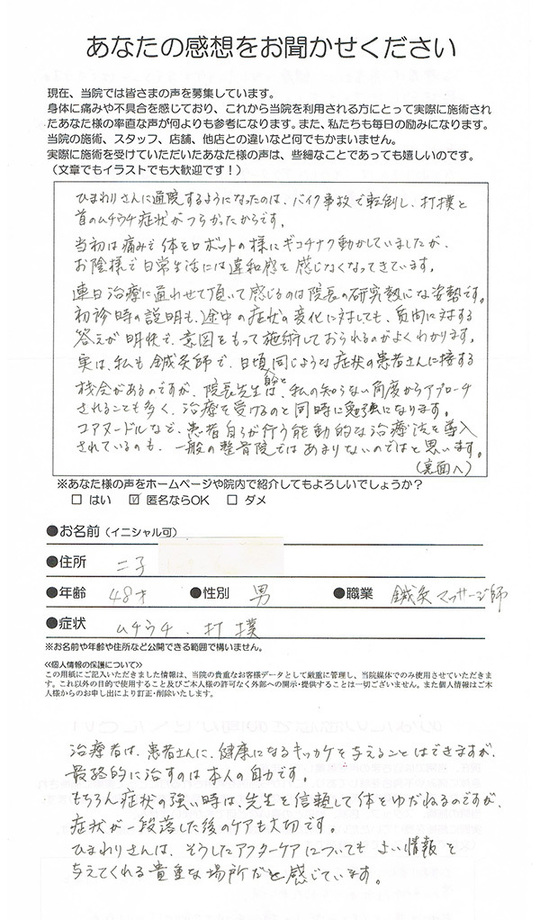 あなたの感想をお聞かせください
現在、当院では皆さまの声を募集しています。
身体に痛みや不具合を感じており、これから当院を利用される方にとって実際に施術され
たあなた様の率直な声が何よりも参考になります。また、私たちも毎日の励みになります。
当院の施術、スタッフ、店舗、他店との違いなど何でもかまいません。
実際に施術を受けていただいたあなた様の声は、些細なことであっても嬉しいのです。
(文章でもイラストでも大歓迎です！)
ひまわりさんに通院するようになったのは、バイク事故で転倒し、打撲と
首のムチウチ症状がつらかったからです。
当初は痛みで体をロボットの様にギコチナク動かしていましたが、
お陰様で日常生活には違和感を感じなくなってきています。
連日治療に通わせて頂いて感じるのは院長の研究熱心な姿勢です。
初診時の説明も、途中の症状の変化に対しても、質問に対する
答えが明快で、意図をもって施術しておられるのがよくわかります。
実は、私も鍼灸師で、日頃、同じような症状の患者さんに接する
機会があるのですが、院長先生は、私の知らない角度からアプローチ
されることも多く、治療を受けるのと同時に勉強になります。
コアヌードルなど、患者自らが行う能動的な治療法を導入
されているのも、一般の整骨院ではあまりないのではと思います。
(裏面へ)
※あなた様の声をホームページや院内で紹介してもよろしいでしょうか？
□ はい ☑ 匿名ならOK □ ダメ
●お名前 (イニシャル可)
●住所 二子
●年齢 48才 ●性別 男 ●職業 鍼灸マッサージ師
●症状 ムチウチ、打撲
※お名前や年齢や住所など公開できる範囲で構いません。
≪個人情報の保護について≫
この用紙にご記入いただきました情報は、当院の貴重なお客様データとして厳重に管理し、当院媒体でのみ使用させていただきま
す。これ以外の目的で使用すること及びご本人様の許可なく外部への開示・提供することは一切ございません。また個人情報はご本
人様からのお申し出により訂正・削除いたします。
治療者は、患者さんに、健康になるキッカケを与えることはできますが、
最終的に治すのは本人の自力です。
もちろん症状の強い時は、先生を信頼して体をゆだねるのですが、
症状が一段落した後のケアも大切です。
ひまわりさんは、そうしたアフターケアについても よい情報を
与えてくれる貴重な場所だと感じています。